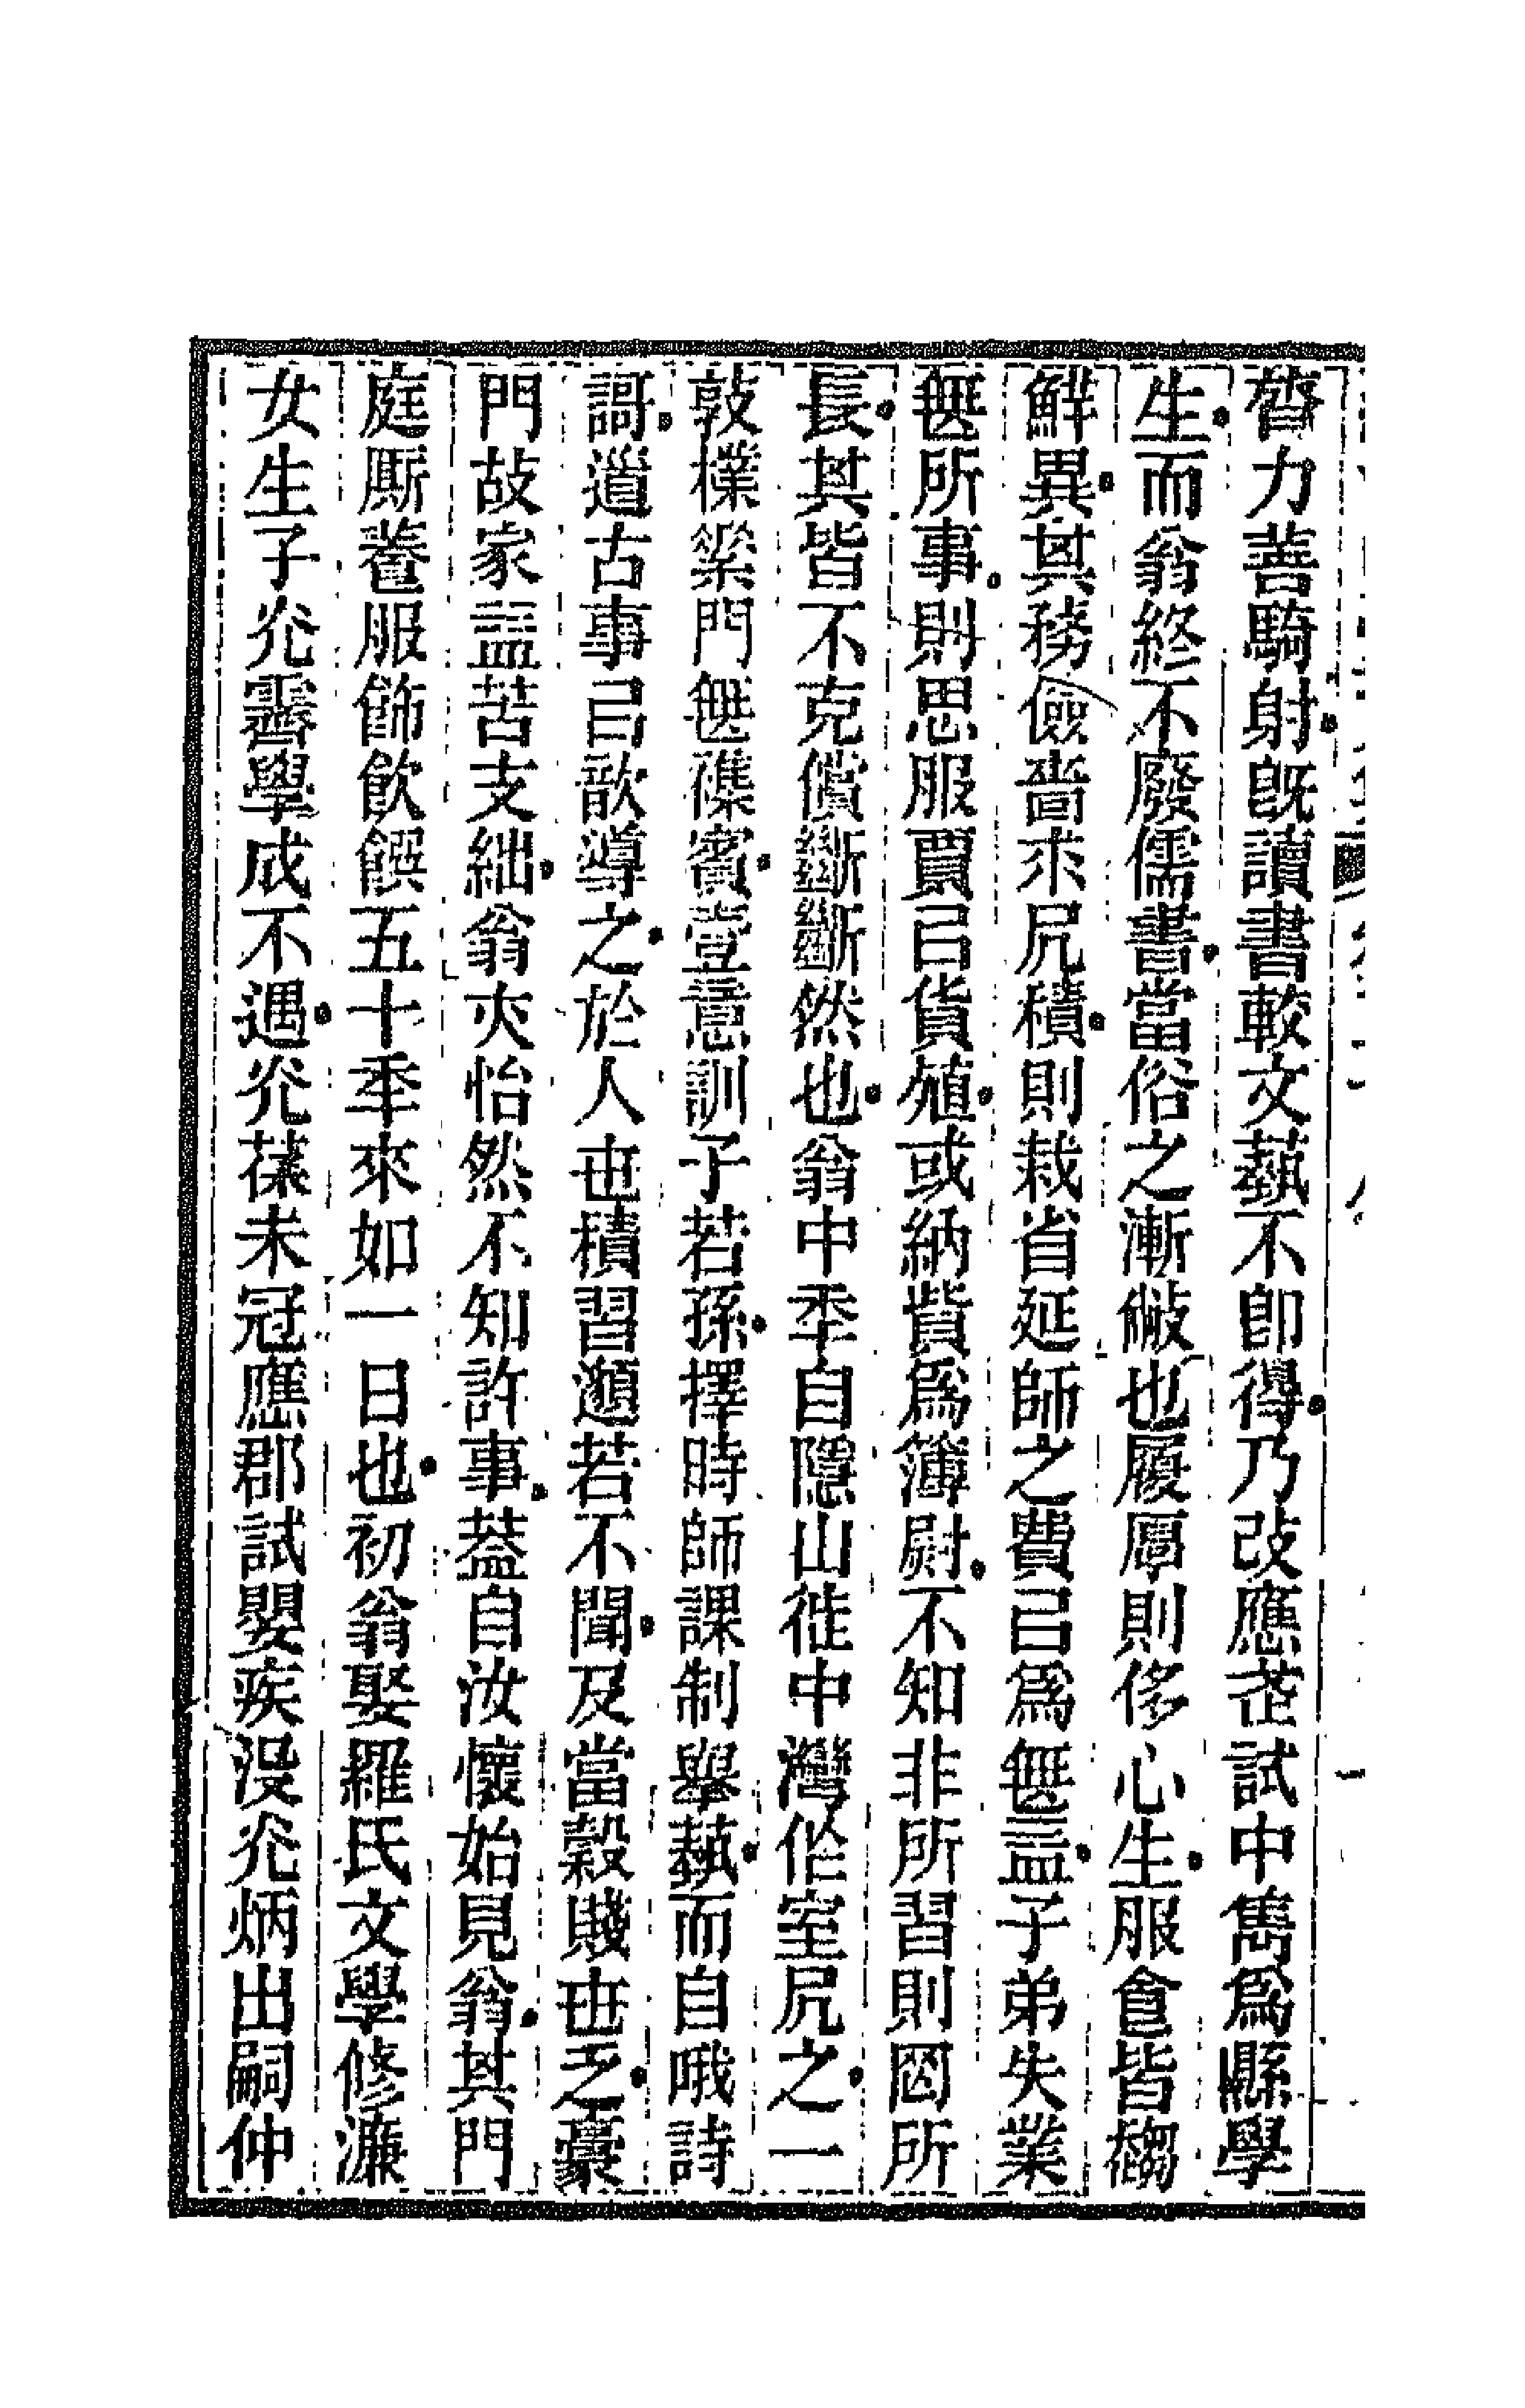 膂力善騎射旣讀書較文藝不卽得乃改應武試中雋爲縣學
生而翁終不廢儒書當俗之漸敝也履厚則侈心生服食皆趨
鮮異其務儉嗇朩凥積則栽省延師之費㠯爲無益子弟失業
無所事則思服賈㠯貨殖或納貲爲簿尉不知非所習則罔所
長其皆不克償斷斷然也翁中秊自隱山徙中灣作室凥之一
敦樸絫門無襍賓壹意訓子若孫擇時師課制擧藝而自哦詩
謌道古事㠯歆導之於人世積習邈若不聞及當穀賤世乏豪
門故家益苦支絀翁夾怡然不知許事葢自汝懷始見翁其門
庭厮養服飾飮饌五十秊來如一日也初翁娶羅氏文學修濂
女生子光霽學成不遇光葆未冠應郡試嬰疾沒光炳出嗣仲